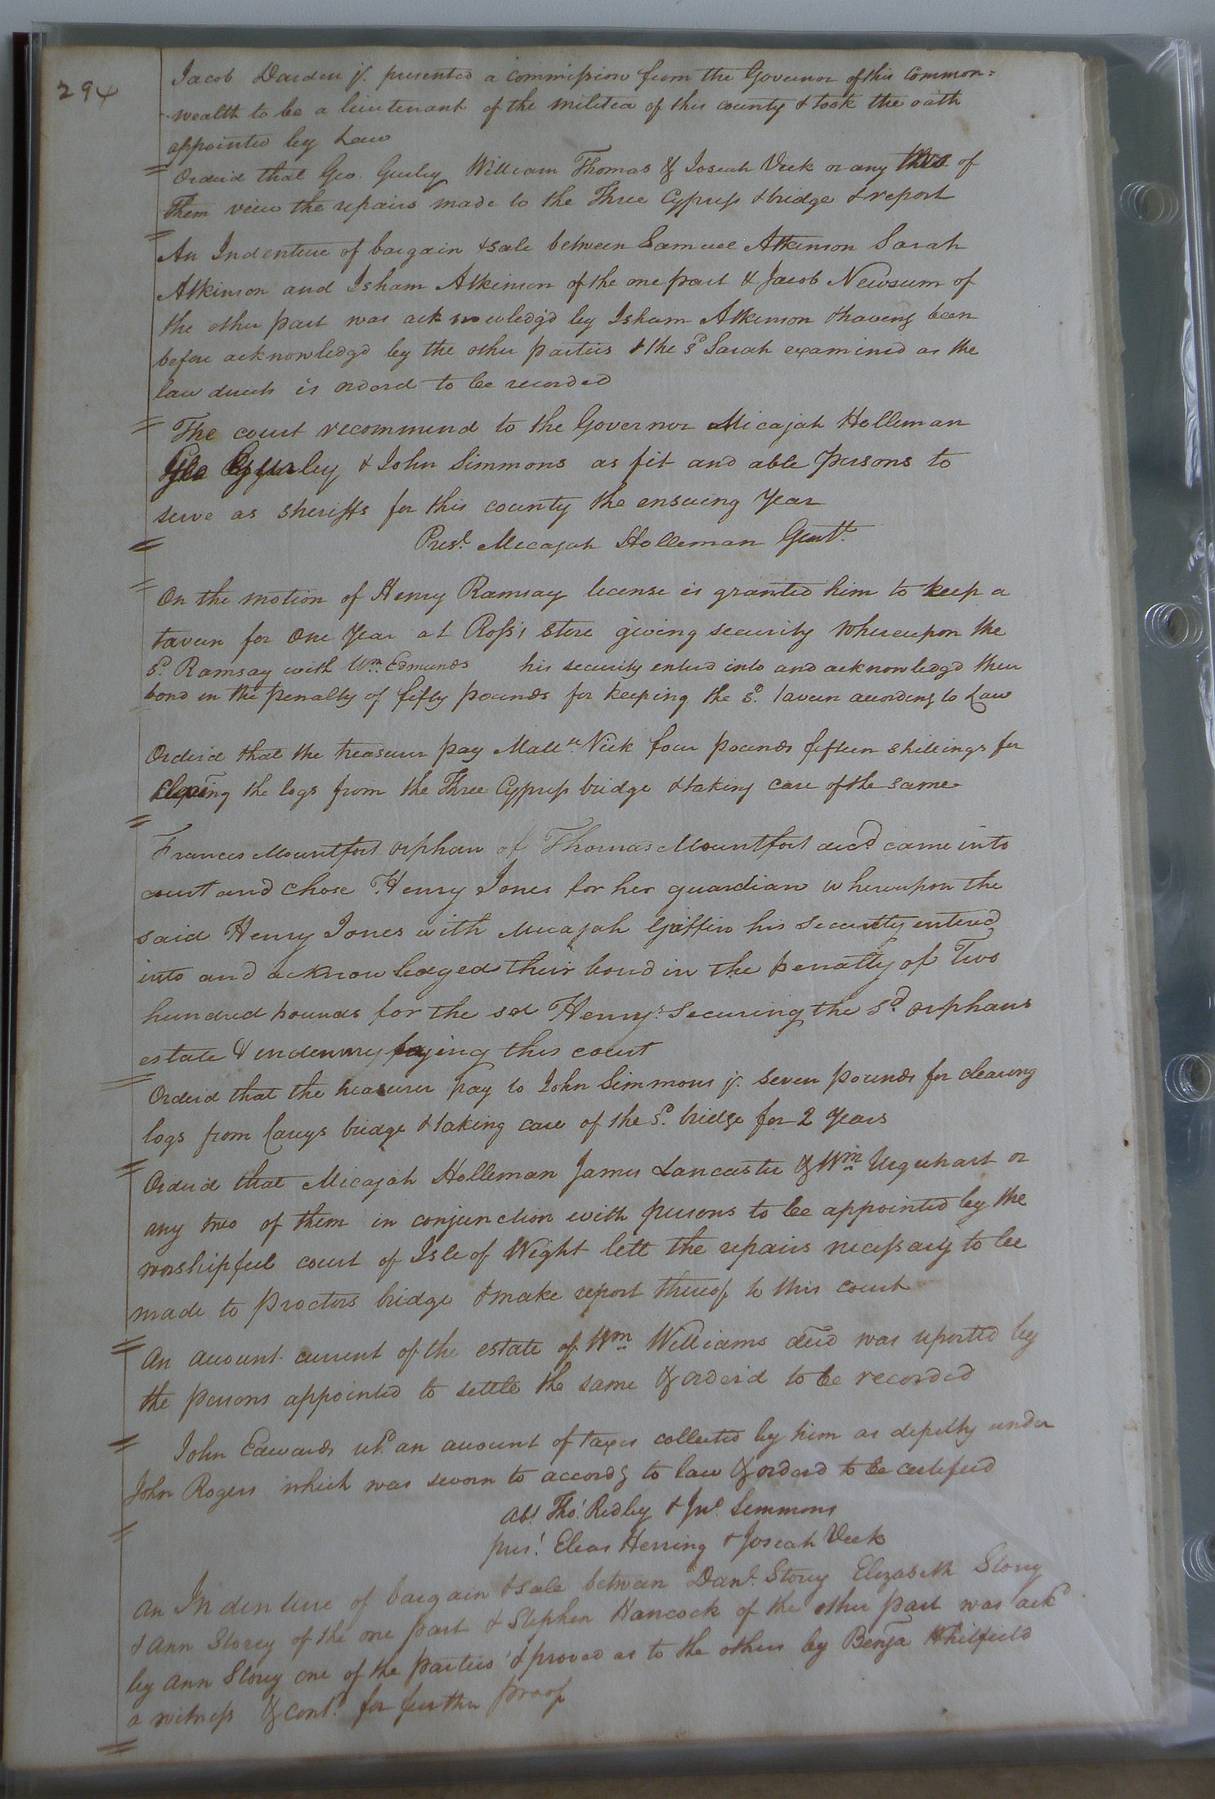 294
Jacob Darden jr. presented a commission from the Governor of this common=
wealth to be a lieutenant of the militia of this county & took the oath
appointed by Law
Orderd that Geo. Gurley William Thomas & Josiah Vick or any two of
them view the repairs made to the Three Cypress bridge & report
An Indenture of bargain & sale between Samuel Atkinson Sarah
Atkinson and Isham Atkinson of the one part & Jacob Newsum of
the other part was acknowledgd by Isham Atkinson & having been
before acknowledgd by the other parties & the sd Sarah examined as the
law directs is orderd to be recorded
The court recommend to the Governor Micajah Holleman
Geo Gurley & John Simmons as fit and able persons to
serve as sheriffs for this county the ensuing Year
Prest. Micajah Holleman Gentt.
On the motion of Henry Ramsay license is granted him to keep a
tavern for One Year at Ross's Store giving security Whereupon the
sd. Ramsay with Wm. Edmunds his security enterd into and acknowledgd their
bond in the penalty of fifty pounds for keeping the sd. tavern according to Law
Orderd that the treasurer pay Matt.w Vick four pounds fifteen shillings for
clearing the logs from the Three Cypress bridge & taking care of the same
Frances Mountfort orphan of Thomas Mountfort decd came into
court and chose Henry Jones for her guardian whereupon the
said Henry Jones with Micajah Griffin his security enterd
into and acknowledged their bond in the penalty of Two
hundred pounds for the sd Henry's Securing the sd. orphans
estate & indemnyfaying this court
Orderd that the treasurer pay to John Simmons jr. seven pounds for clearing
logs from Careys bridge & taking care of the sd. bridge for 2 Years
Orderd that Micajah Holleman James Lancaster & Wm. Urquhart or
any two of them in conjunction with persons to be appointed by the
worshipful court of Isle of Wight lett the repairs necessary to be
made to Proctors bridge & make report thereof to this court
An account current of the estate of Wm. Williams decd was reported by
the persons appointed to settle the same & orderd to be recorded
John Edwards retd an account of taxes collected by him as deputy under
John Rogers which was sworn to accordg to law & orderd to be certified
Abt. Thos. Ridley & Jno. Simmons
prest. Elias Herring & Josiah Vick
An Indenture of bargain & sale between Danl. Storey Elizabeth Storey
& Ann Storey of the one part & Stephen Hancock of the other part was ackd
by Ann Storey one of the parties & proved as to the others by Benja Whitfield
a witness & cont.d for further proof